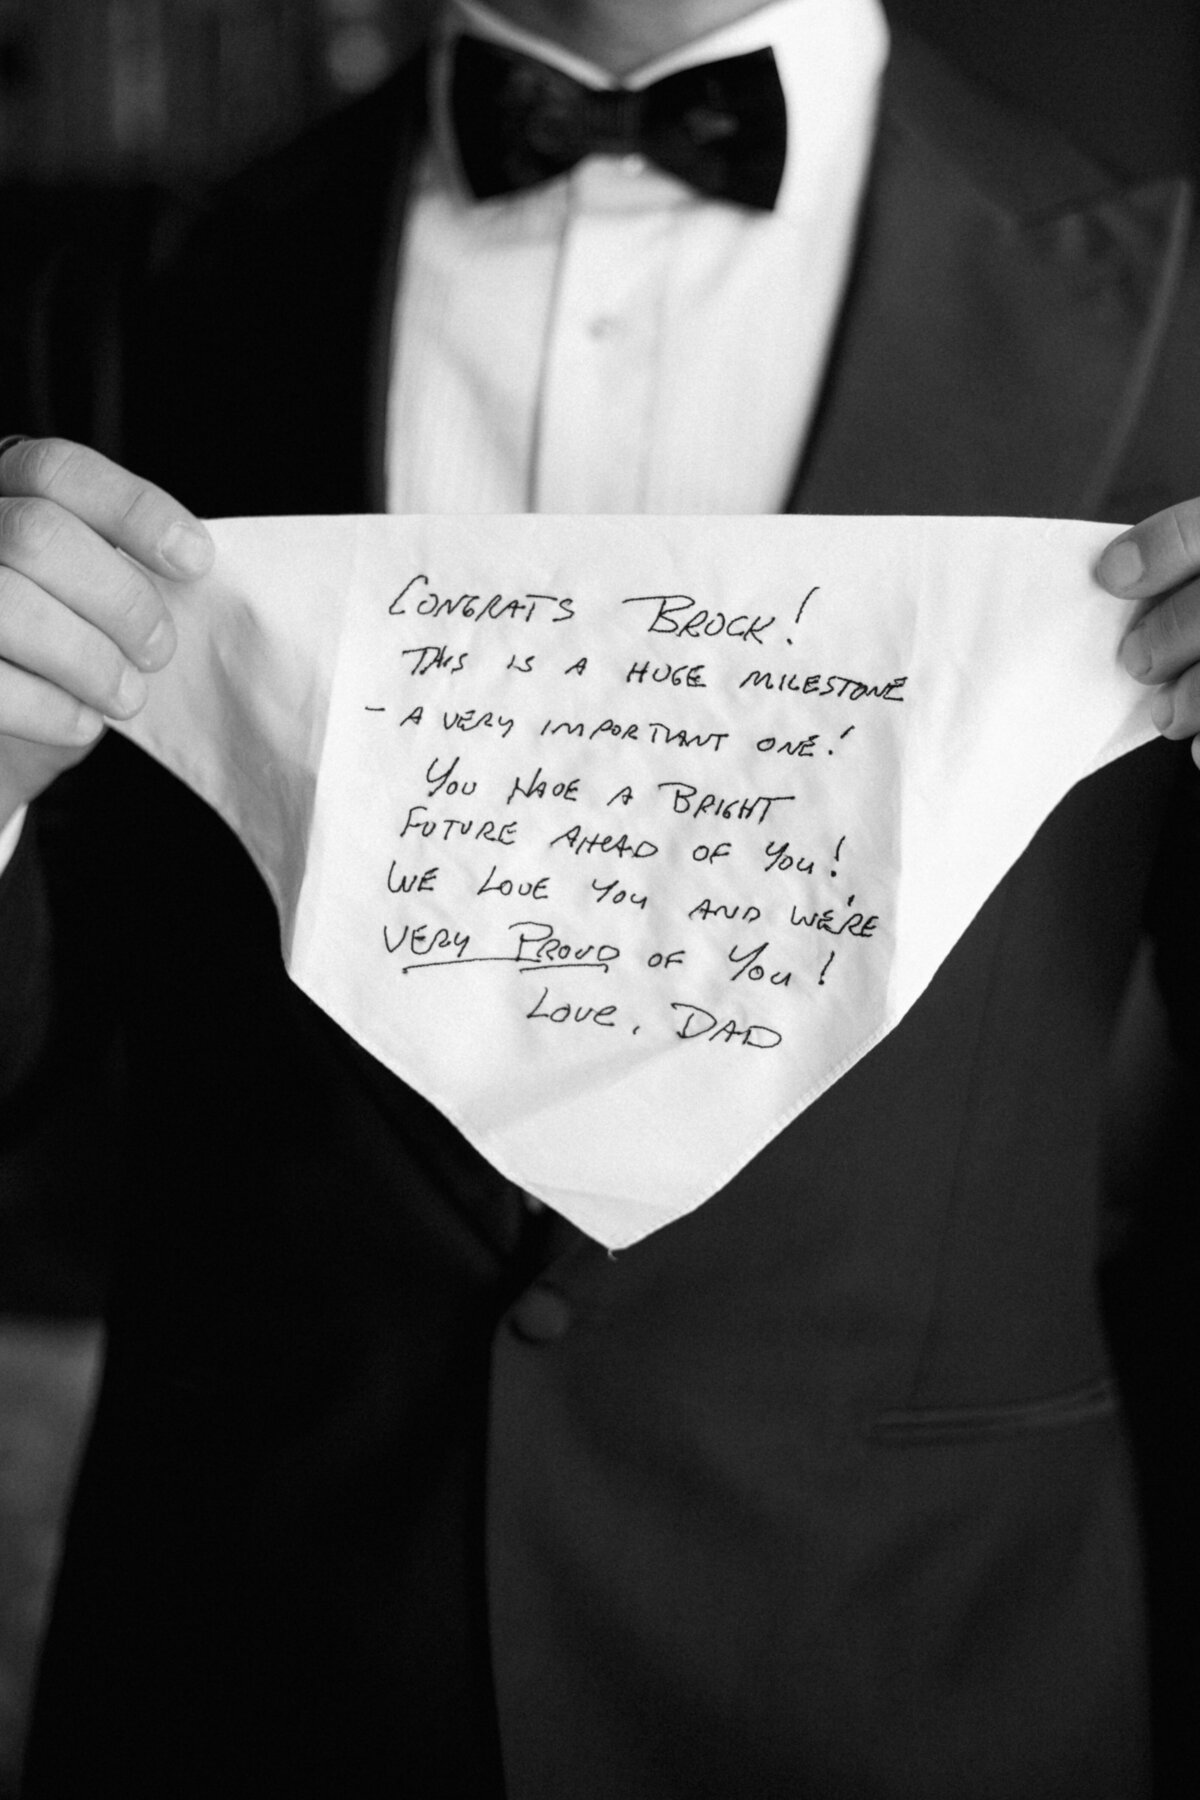 CONGRATS BROCK!
THIS IS A HUGE MILESTONE
- A VERY IMPORTANT ONE!
YOU HAVE A BRIGHT
FUTURE AHEAD OF YOU!
WE LOVE YOU AND WE'RE
VERY PROUD OF YOU!
LOVE, DAD